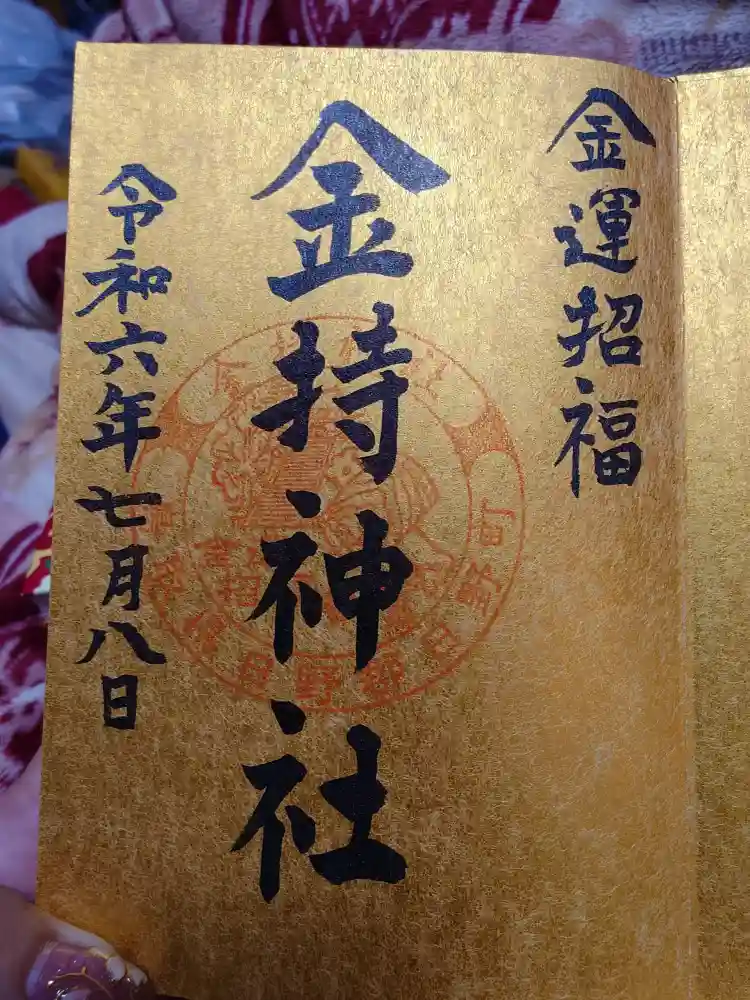 金運招福
金持神社
令和六年七月八日